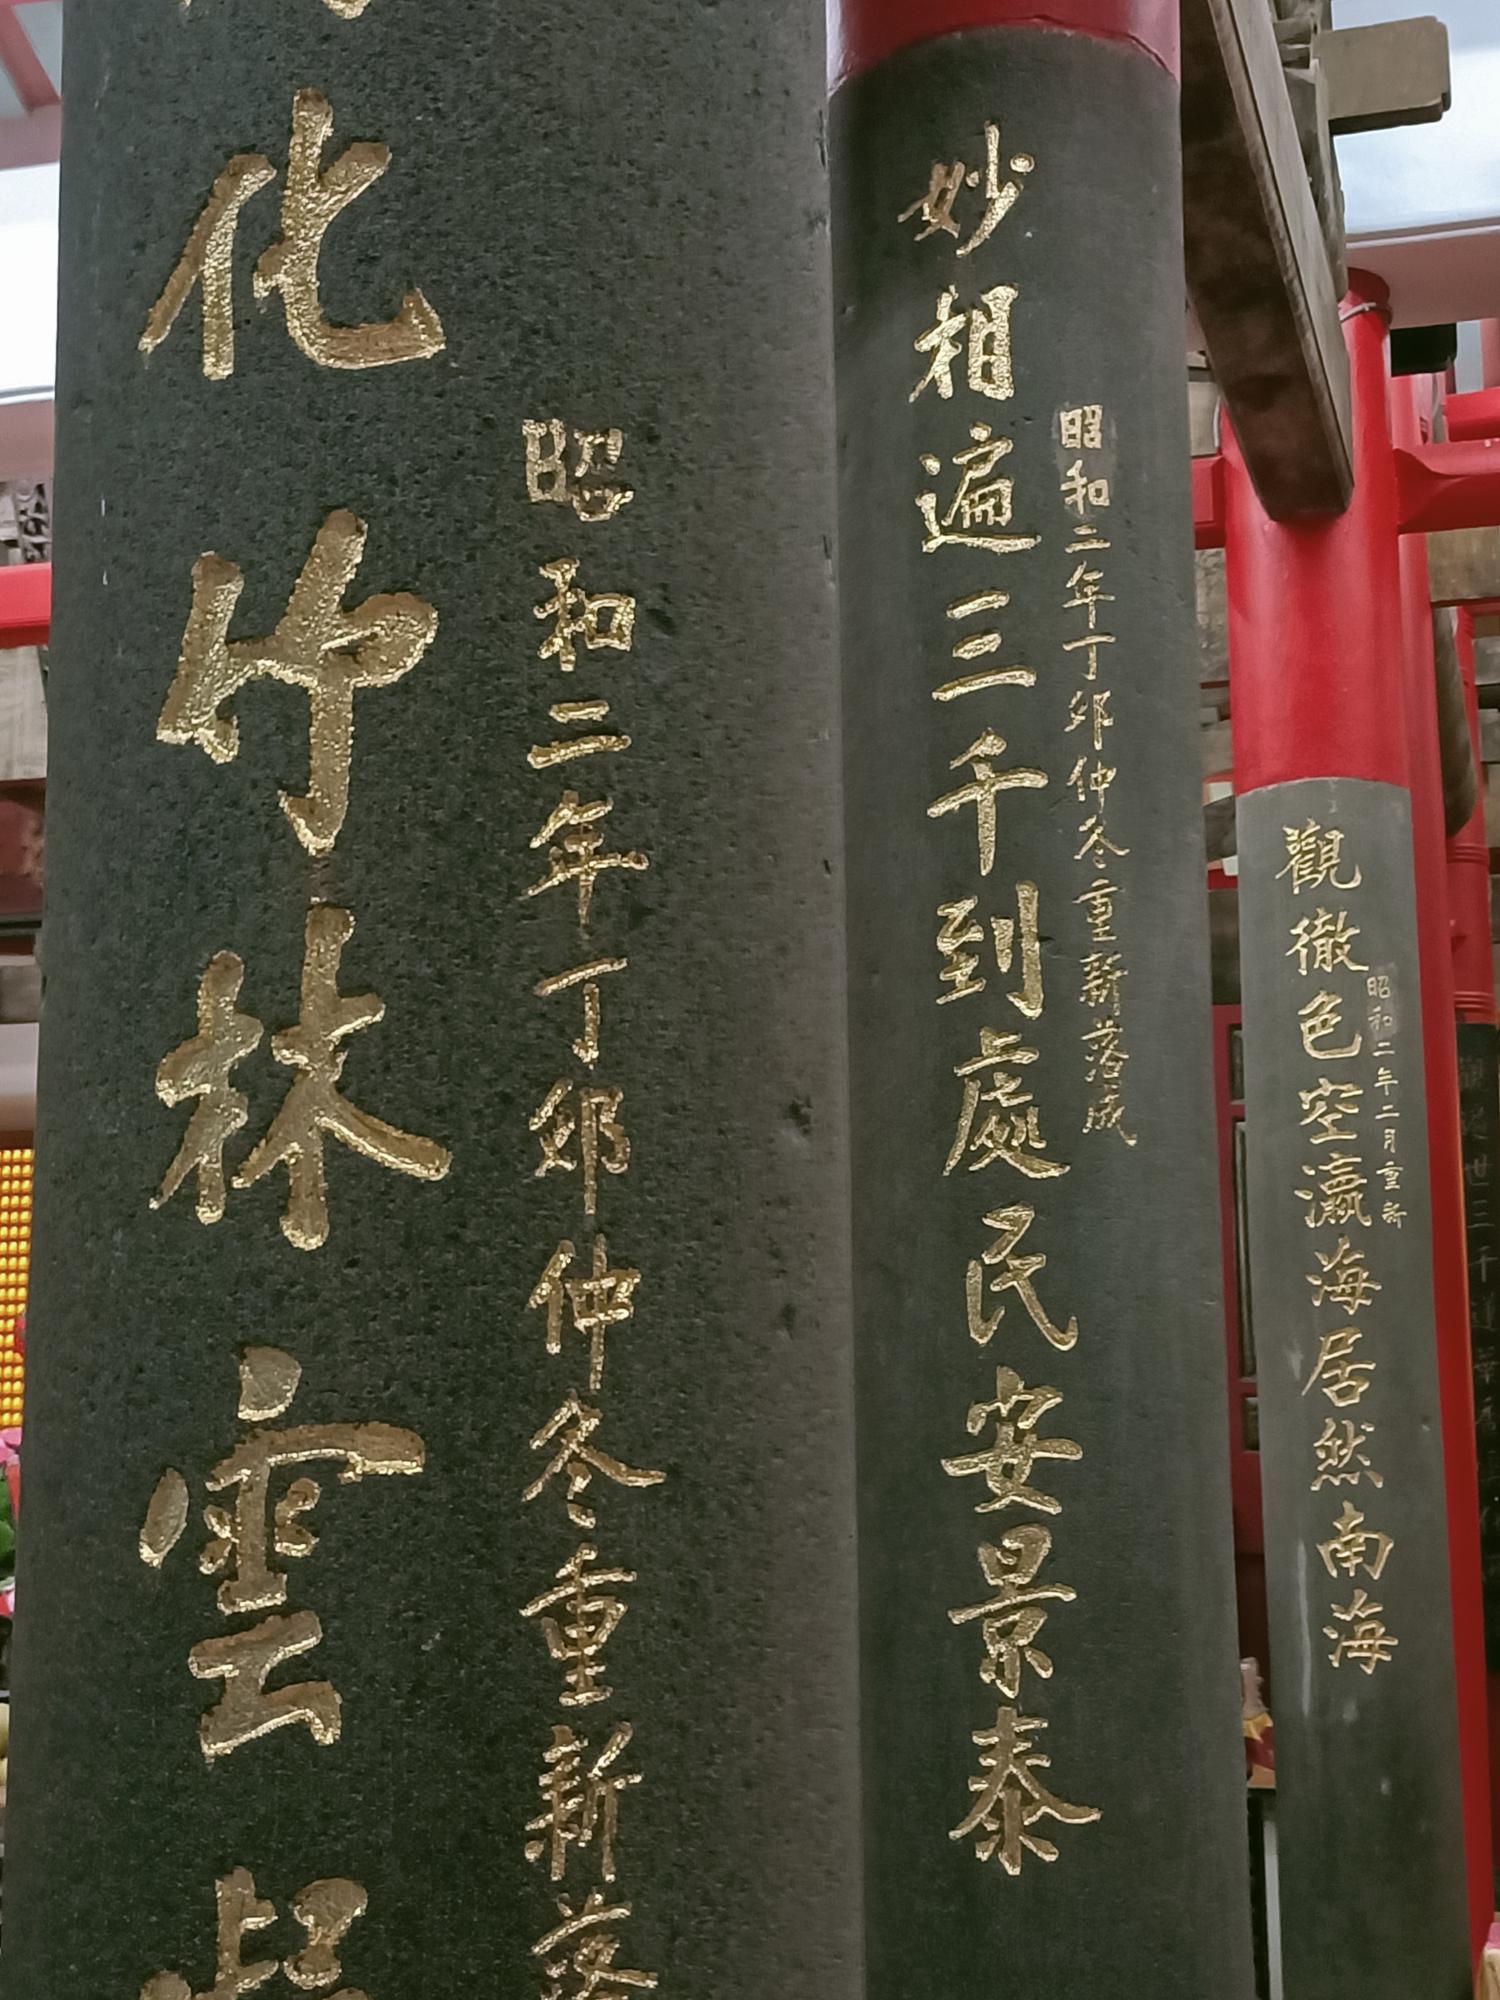 化竹林雲
昭和二年丁卯仲冬重新落
妙相遍三千到處民安景泰
昭和二年丁卯仲冬重新落成
觀徹色空瀛海居然南海
昭和二年二月重新
世三千